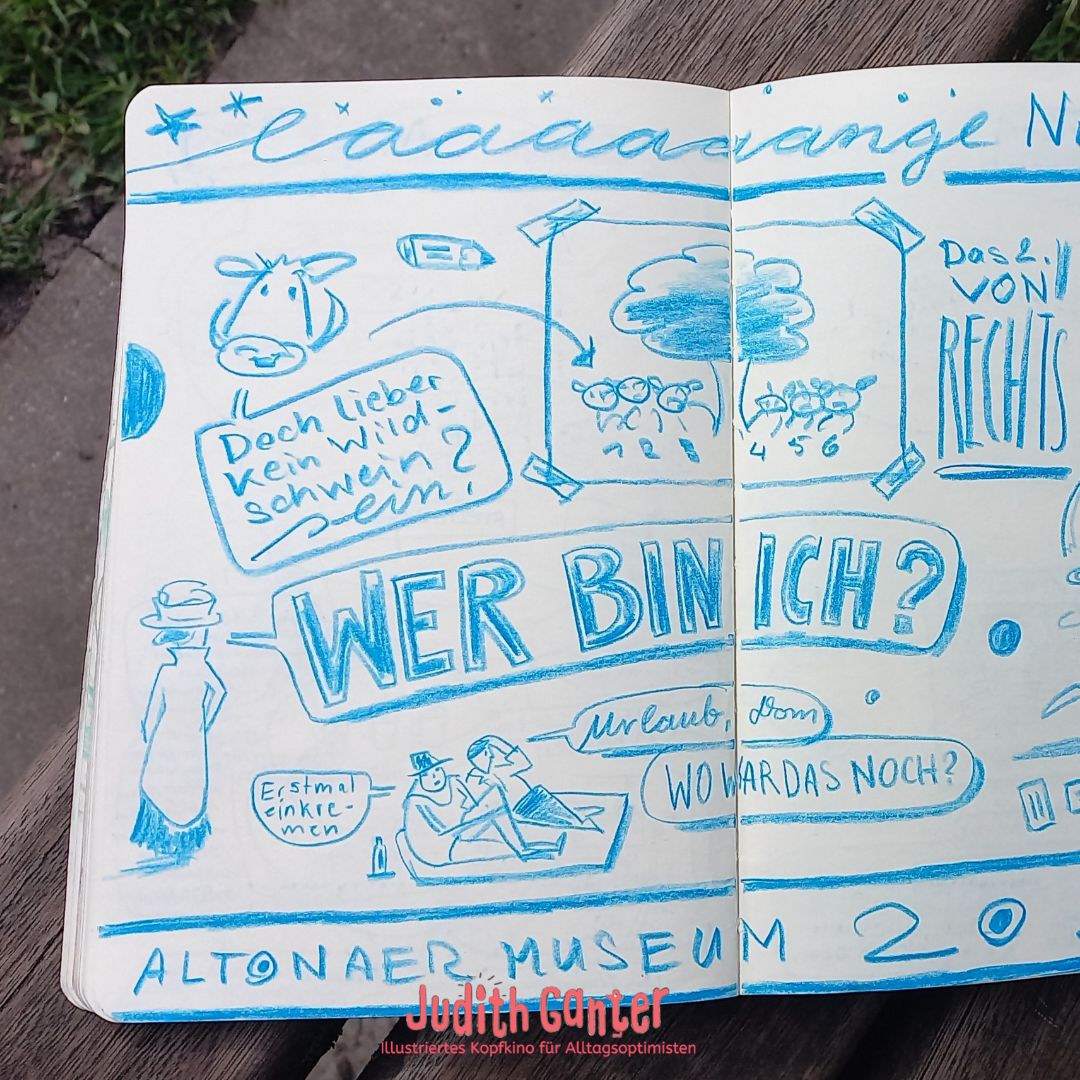 Läääaaaaaange N
Das 2.
VON
RECHTS
Doch lieber
kein Wild-
schwein?
1 2 3 4 5 6
WER BIN ICH?
Urlaub, Dom
WO WAR DAS NOCH?
Erstmal
einkre-
men
ALTONAER MUSEUM 20
Judith Ganter
Illustriertes Kopfkino für Alltagsoptimisten